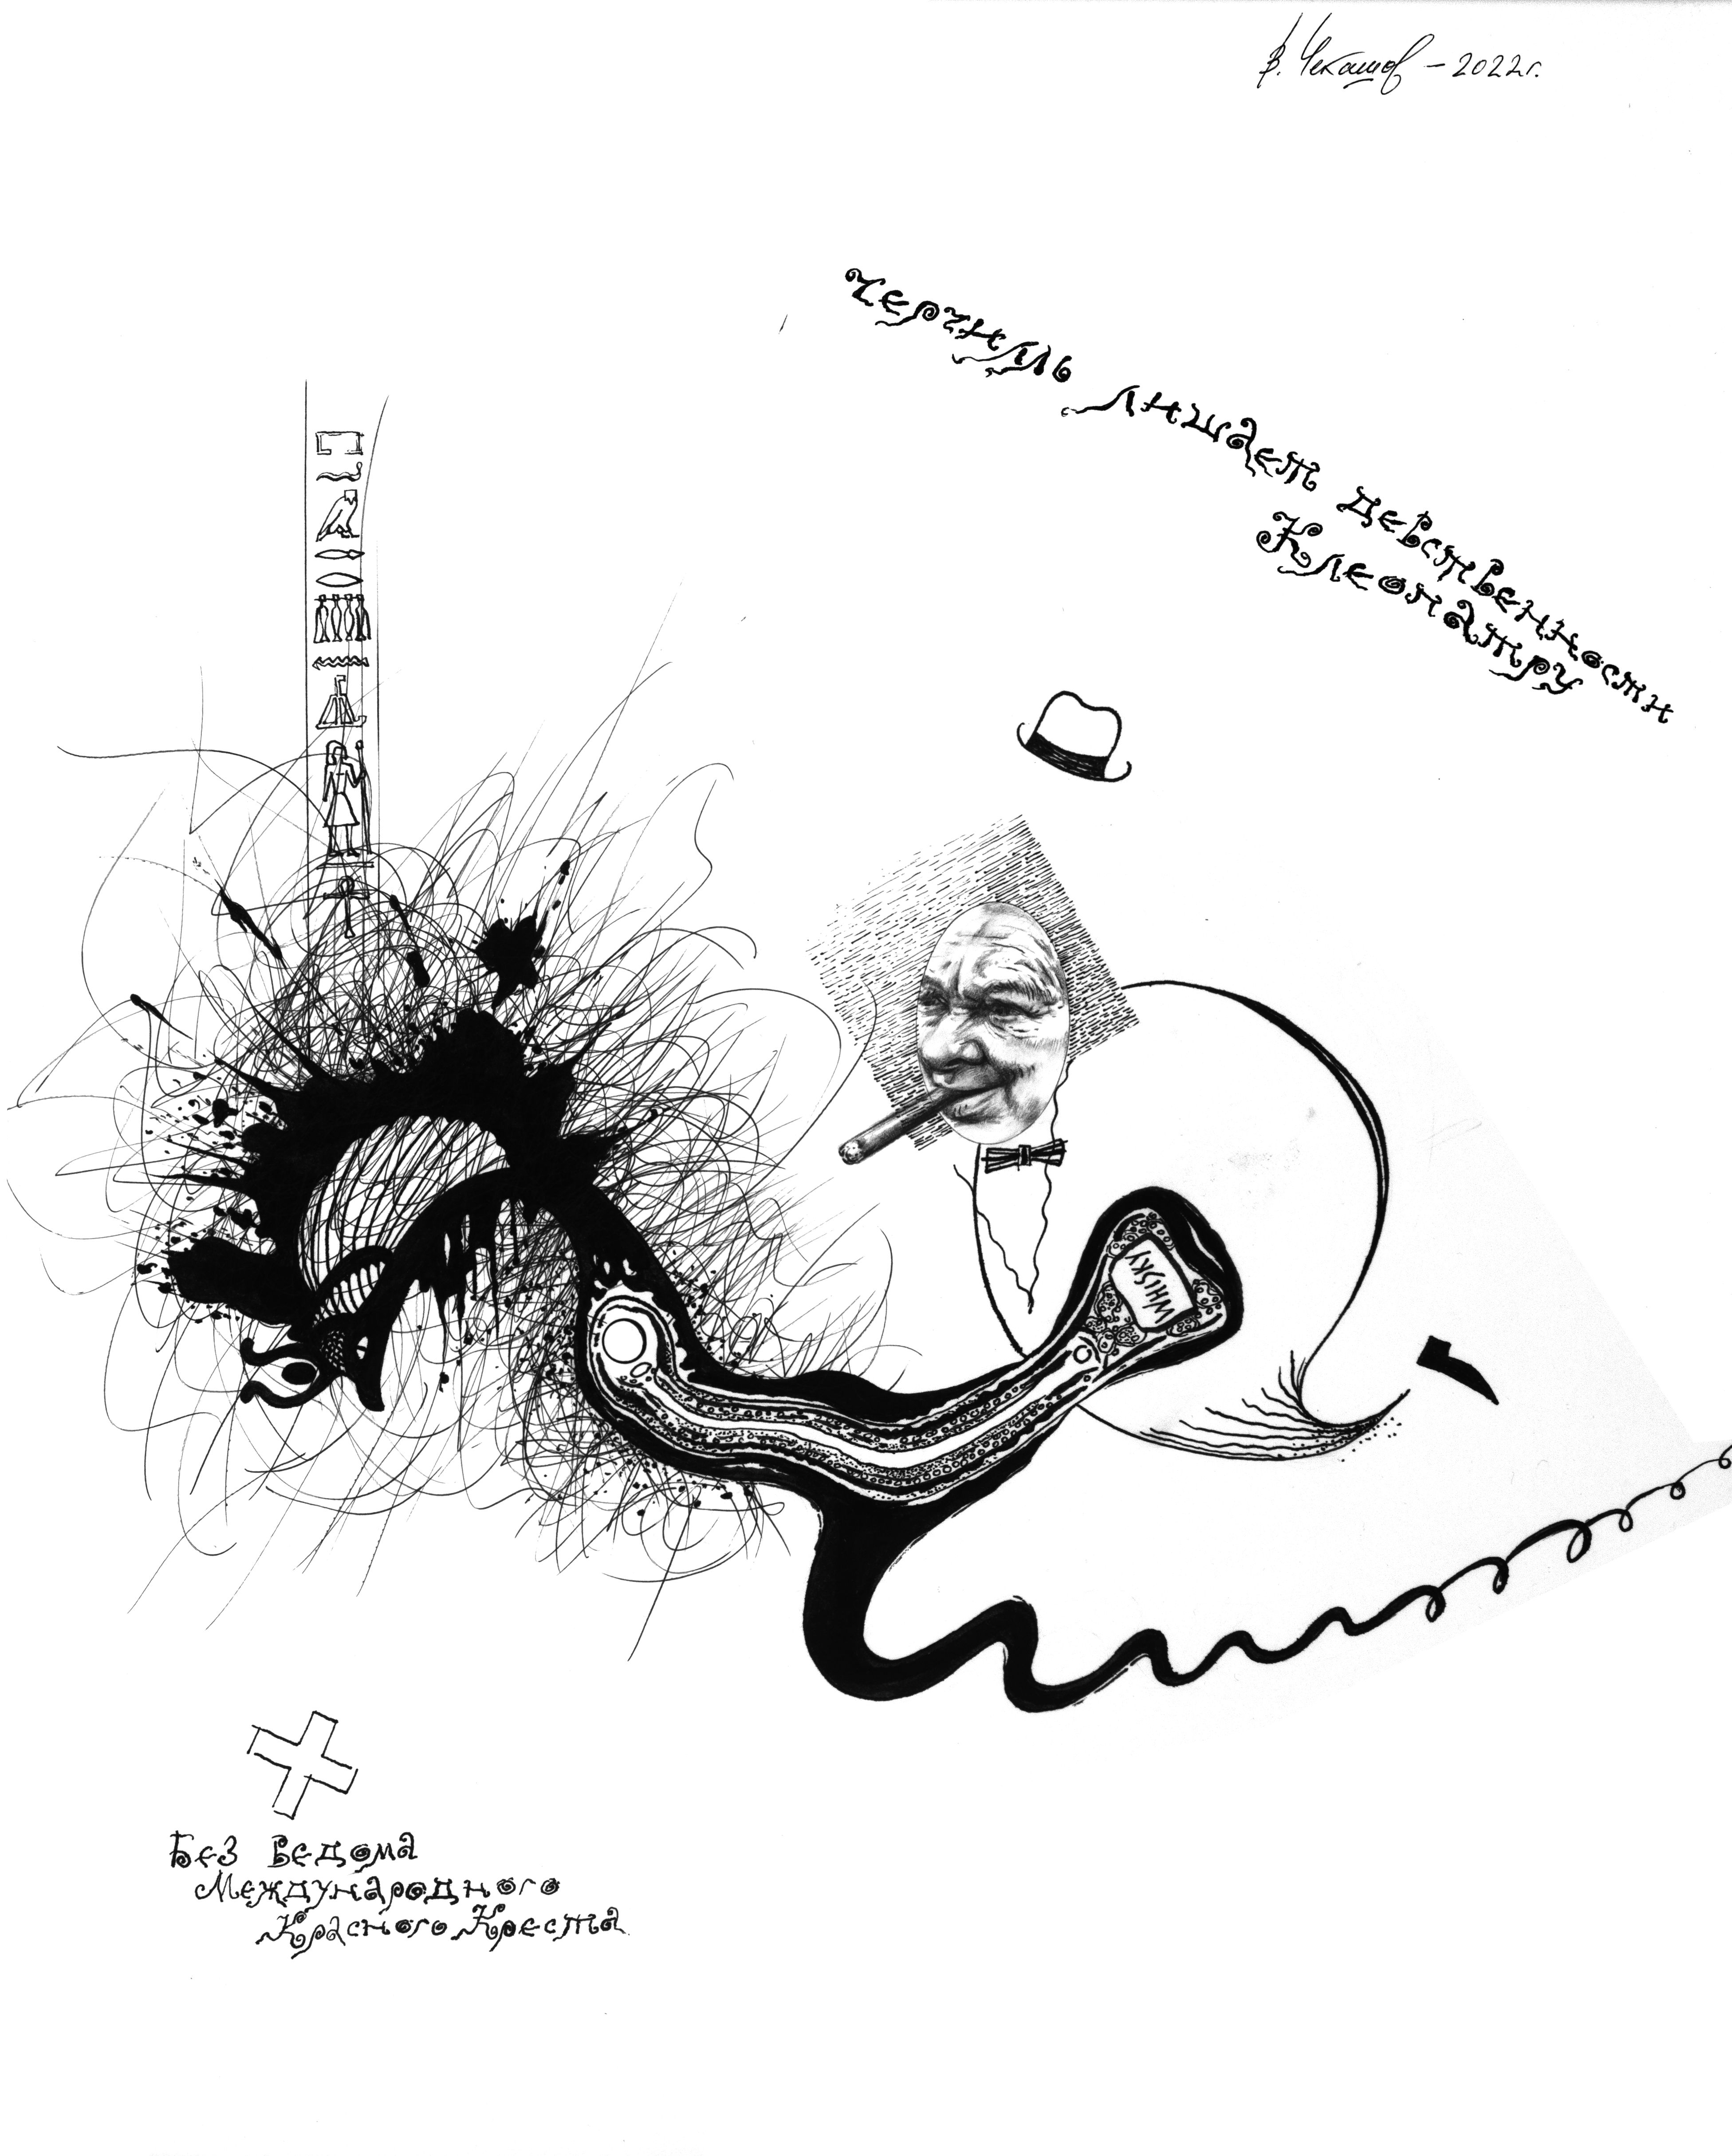 В. Чекашов - 2022г.
Черчиль лишает девственности
Клеопатру
WHISKY
Без ведома
Международного
Красного Креста